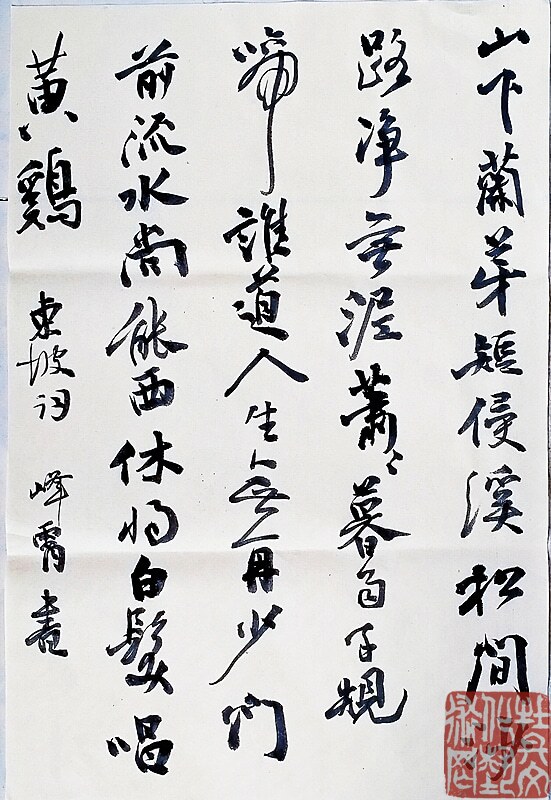 山下蘭芽短侵溪松間沙
路净無泥蕭々暮雨子規
啼誰道人生無再少門
前流水尚能西休将白髮唱
黄鷄 東坡词 峰霄書